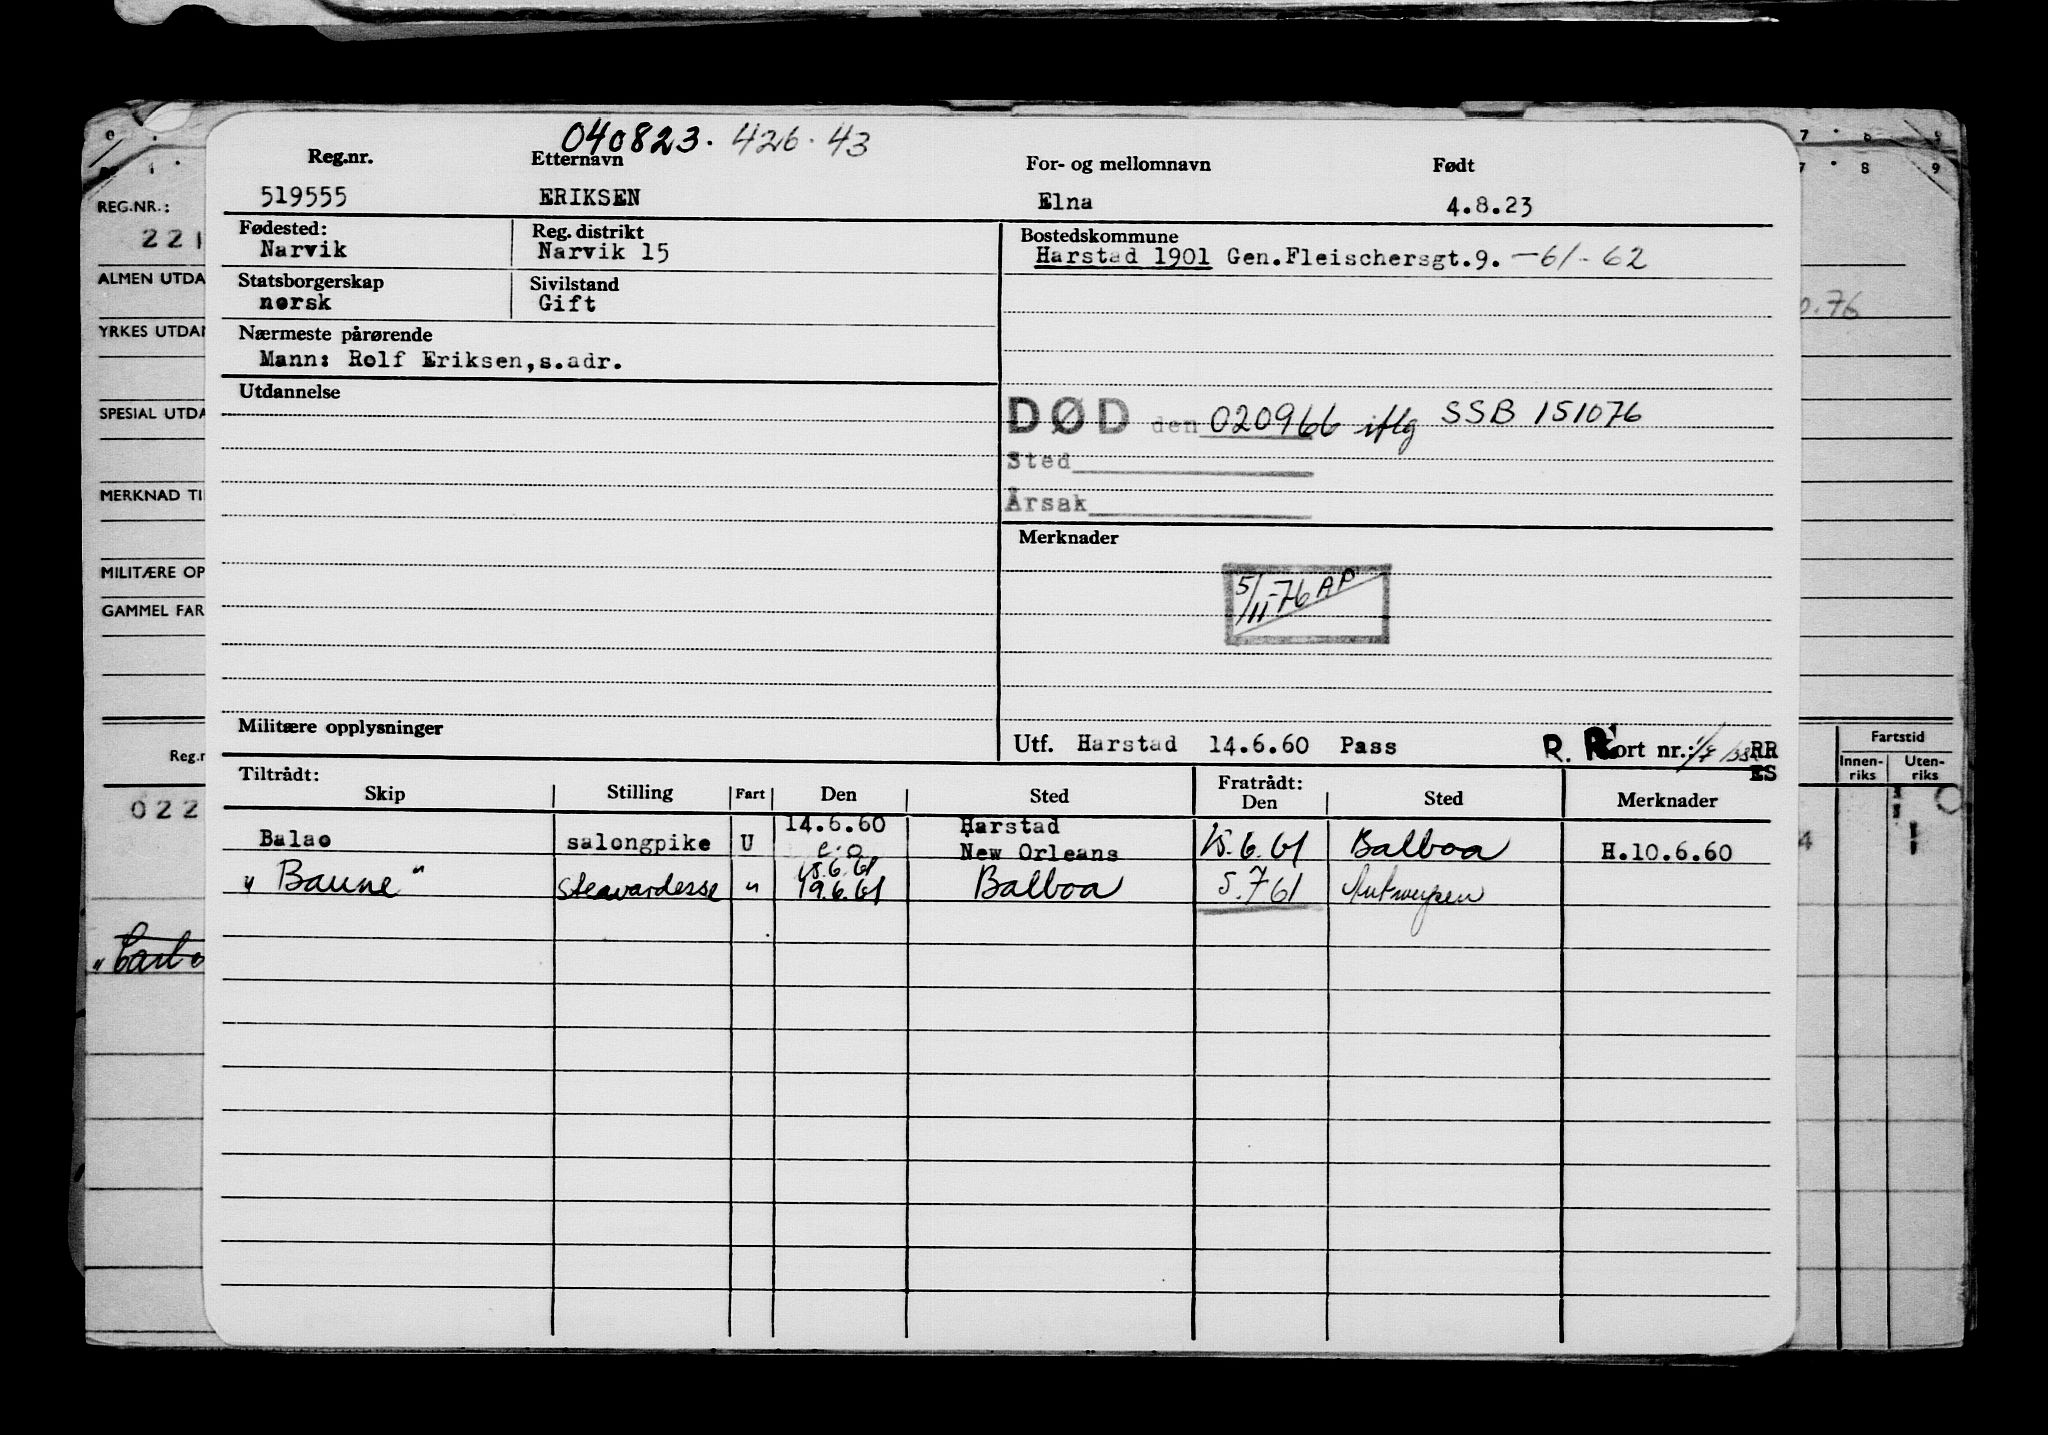 040823. 426.43
Reg.nr. Etternavn For- og mellomnavn Født
519555 ERIKSEN Elna 4.8.23
Fødested: Reg. distrikt Bostedskommune
Narvik Narvik 15 Harstad 1901 Gen.Fleischersgt.9. -61-62
Statsborgerskap Sivilstand
norsk Gift
Nærmeste pårørende
Mann: Rolf Eriksen,s.adr.
Utdannelse
DØD den 020966 iflg SSB 151076
Sted
Årsak
Merknader
5/11-76 AP
Militære opplysninger
Utf. Harstad 14.6.60 Pass R. R Kort nr.: RR
ES
Tiltrådt: Fratrådt:
Skip Stilling Fart Den Sted Den Sted Merknader
14.6.60 Harstad
Balao salongpike U New Orleans 15.6.61 Balboa H.10.6.60
15.6.61
" Baune " Steawardesse " 19.6.61 Balboa 5.7 61 Antwerpen
REG.NR.:
221
ALMEN UTDA
YRKES UTDAN
SPESIAL UTDA
MERKNAD TI
MILITÆRE OP
GAMMEL FAR
Reg.n
022
7 8 9
7 8 9
0.76
Fartstid
Innen-riks Uten-riks
4